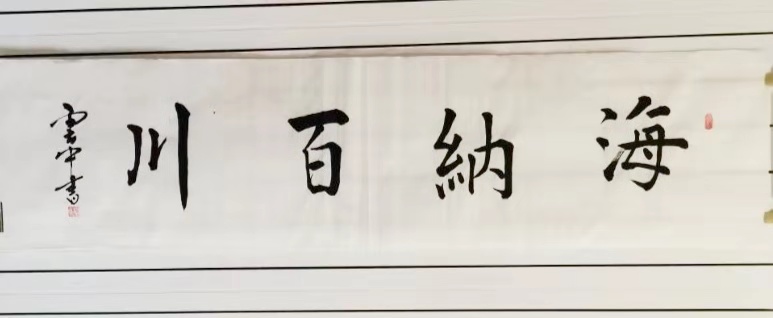 海納百川
雲中書